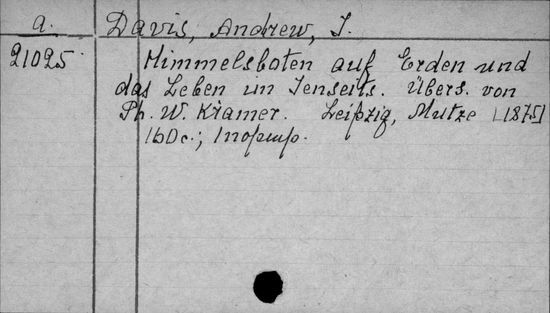 a. Davis, Andrew, J.
21025 Himmelsboten auf Erden und
das Leben im Jenseits. Übers. von
Ph. W. Kramer. Leipzig, Mutze [1875]
160c.; 1порtр.